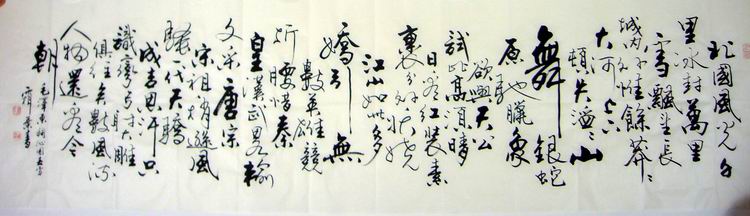 北國風光千
里冰封萬里
雪飄望長
城內外惟餘莽莽
大河上下
頓失滔滔山
舞銀蛇
原馳臘象
欲與天公
試比高須晴
日看紅裝素
裹分外妖嬈
江山如此多
嬌引無
數英雄競
折腰惜秦
皇漢武略輸
文采唐宗
宋祖稍遜風
騷一代天驕
成吉思汗只
識彎弓射大雕
俱往矣數風流
人物還看今
朝
毛澤東詞沁園春雪